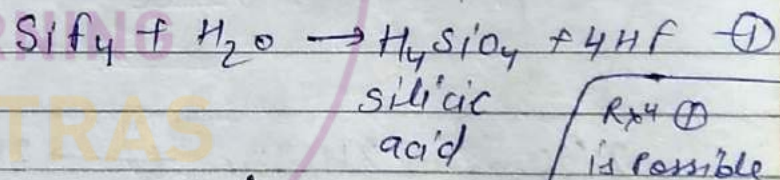 Sify + H₂o → HySiOy + 4HF —①
silicic
acid
Rxⁿ ①
is Possible
NING
TRAS